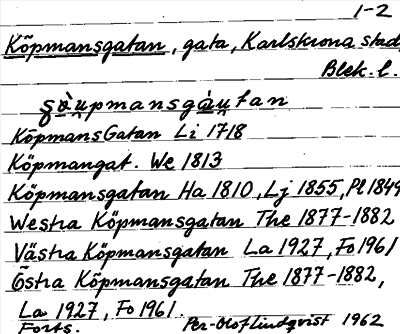 1-2
Köpmansgatan, gata, Karlskrona stad
Blek. l.
KöpmansGatan Li 1718
Köpmangat. We 1813
Köpmansgatan Ha 1810, Lj 1855, Pl 1849
Westra Köpmansgatan The 1877-1882
Västra Köpmansgatan La 1927, Fo 1961
Östra Köpmansgatan The 1877-1882,
La 1927, Fo 1961.
Forts. Per-Olof Lindqvist 1962